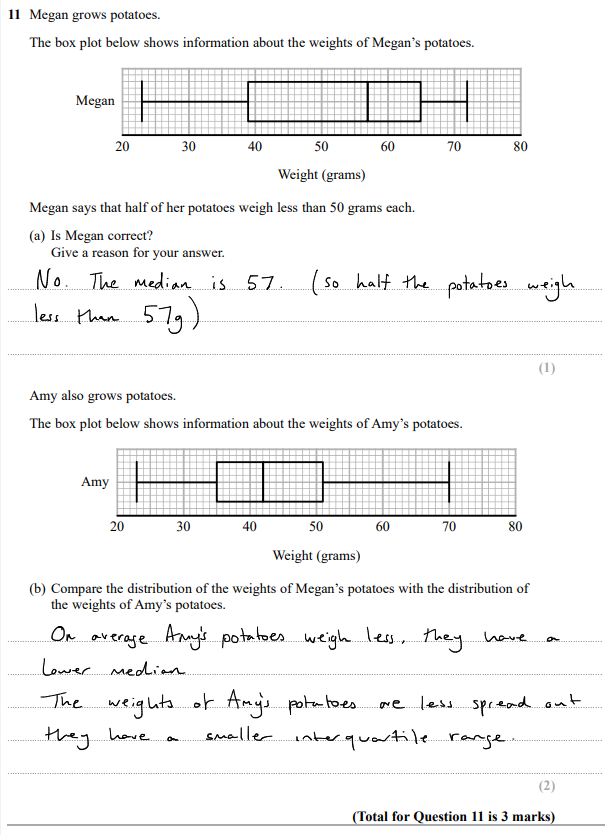 11 Megan grows potatoes.
The box plot below shows information about the weights of Megan's potatoes.
Megan
20 30 40 50 60 70 80
Weight (grams)
Megan says that half of her potatoes weigh less than 50 grams each.
(a) Is Megan correct?
Give a reason for your answer.
No. The median is 57. (so half the potatoes weigh
less than 57g)
(1)
Amy also grows potatoes.
The box plot below shows information about the weights of Amy's potatoes.
Amy
20 30 40 50 60 70 80
Weight (grams)
(b) Compare the distribution of the weights of Megan's potatoes with the distribution of
the weights of Amy's potatoes.
On average Amy's potatoes weigh less, they have a
lower median
The weights of Amy's potatoes are less spread out
they have a smaller interquartile range.
(2)
(Total for Question 11 is 3 marks)